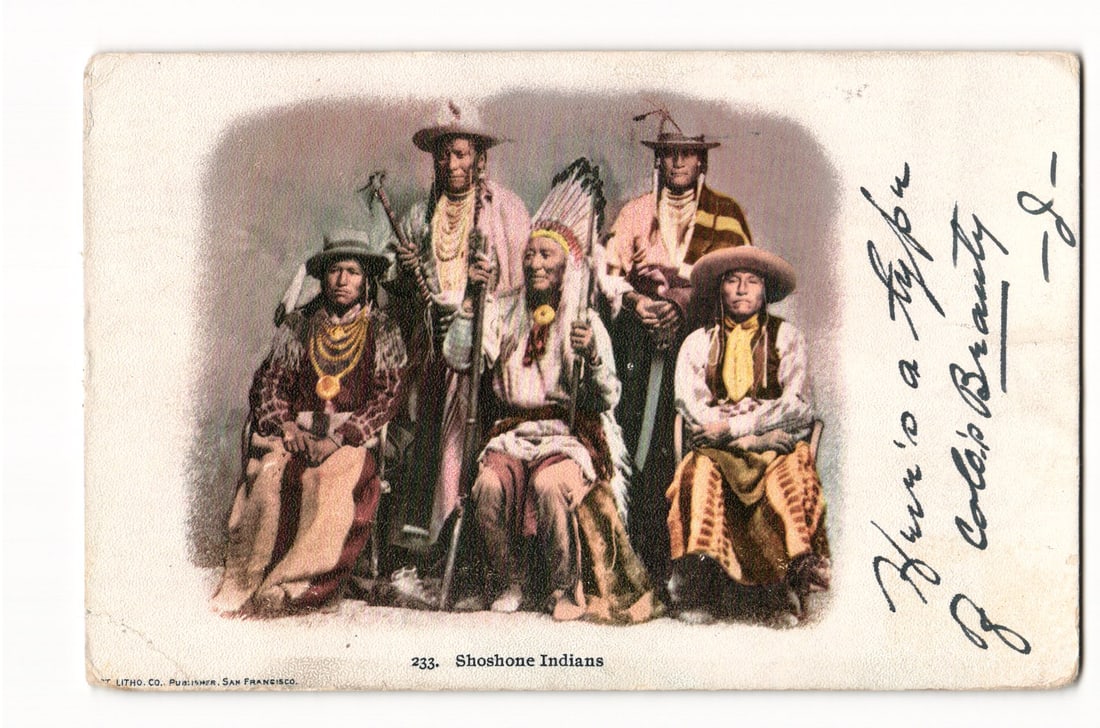 Here's a type
of Colo's Beauty
— J —
233. Shoshone Indians
T LITHO. CO., PUBLISHER, SAN FRANCISCO.